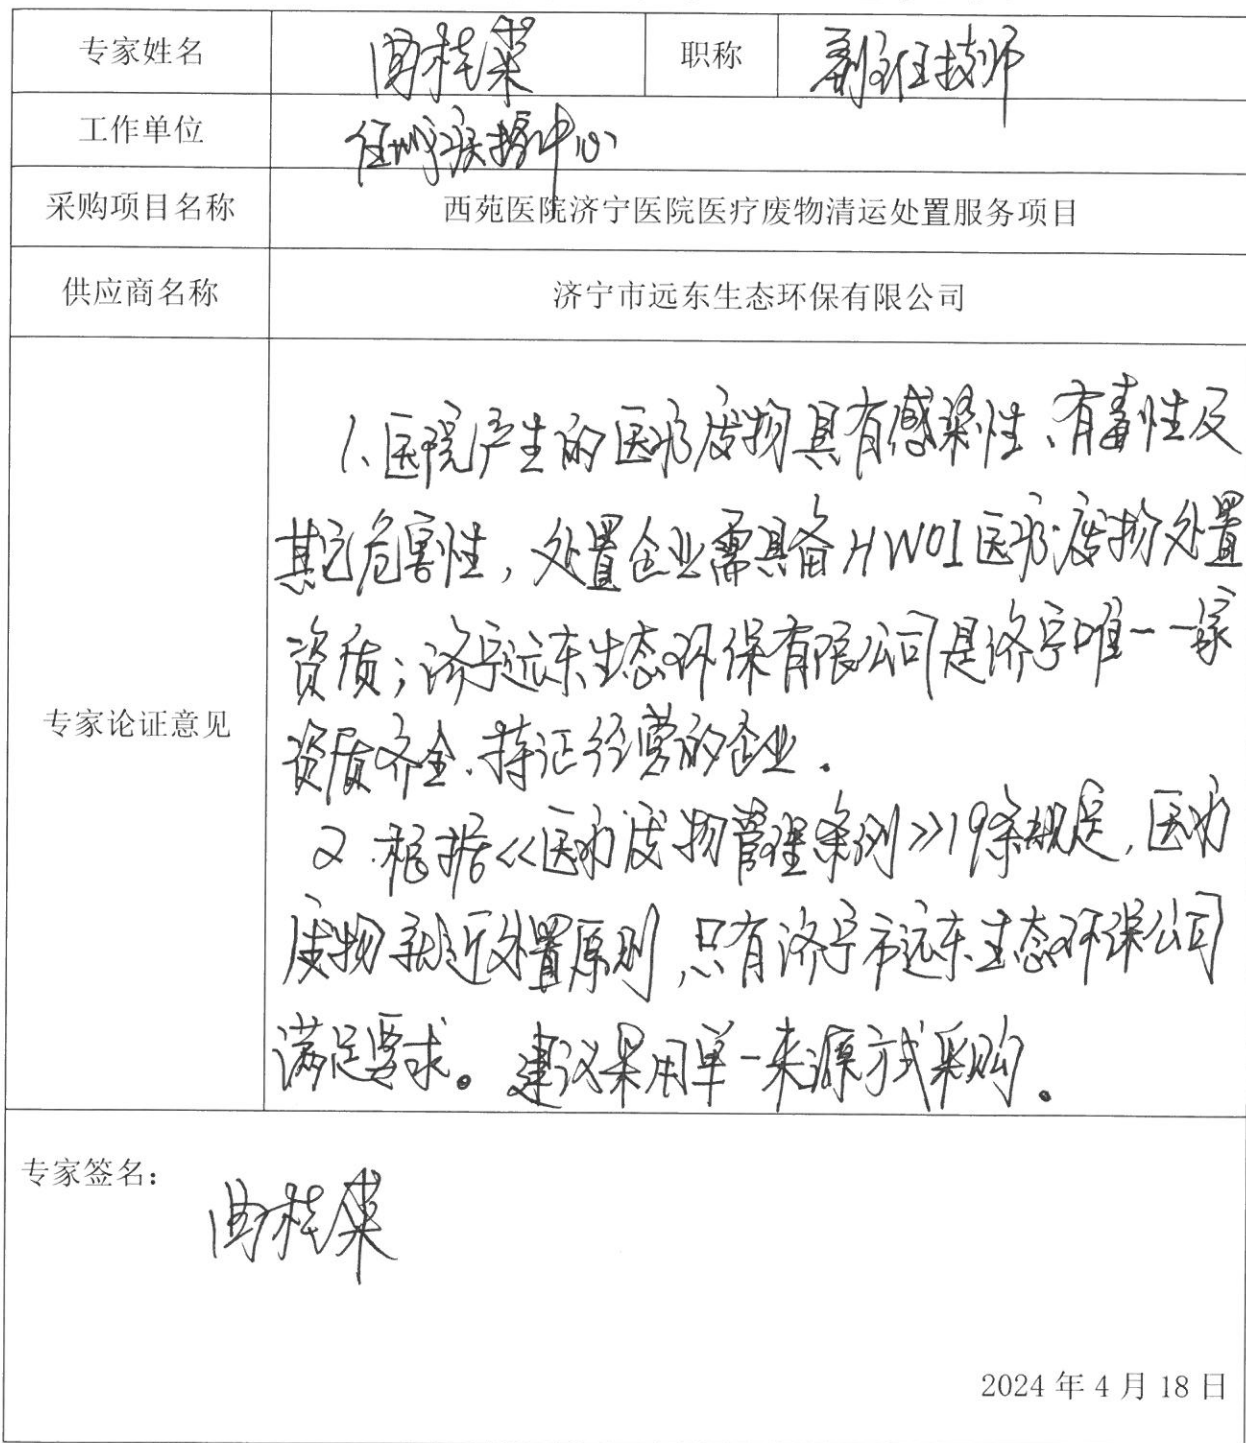 专家姓名 桂菜 职称 副主任技师
工作单位 任城区疾控中心
采购项目名称 西苑医院济宁医院医疗废物清运处置服务项目
供应商名称 济宁市远东生态环保有限公司
专家论证意见
1、医院产生的医疗废物具有感染性、有毒性及
其它危害性，处置企业需具备HW01医疗废物处置
资质；济宁远东生态环保有限公司是济宁唯一一家
资质齐全、持证经营的企业.
2.根据《医疗废物管理条例》19条规定,医疗
废物就近处置原则,只有济宁市远东生态环保公司
满足要求。建议采用单一来源方式采购.
专家签名： 桂菜
2024年4月18日